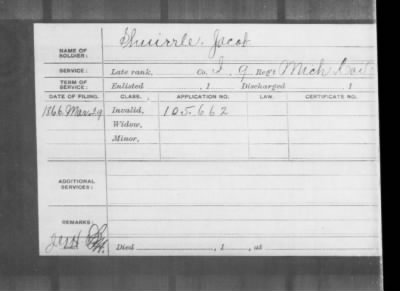 Sheurrle, Jacob
NAME OF SOLDIER:
SERVICE: Late rank, Co. I, 9 Reg't Mich
TERM OF SERVICE: Enlisted , 1 Discharged , 1
DATE OF FILING. CLASS. APPLICATION NO. LAW. CERTIFICATE NO.
1866 Mar. 29 Invalid, 105.662
Widow,
Minor,
ADDITIONAL SERVICES:
REMARKS:
Died , 1 , at